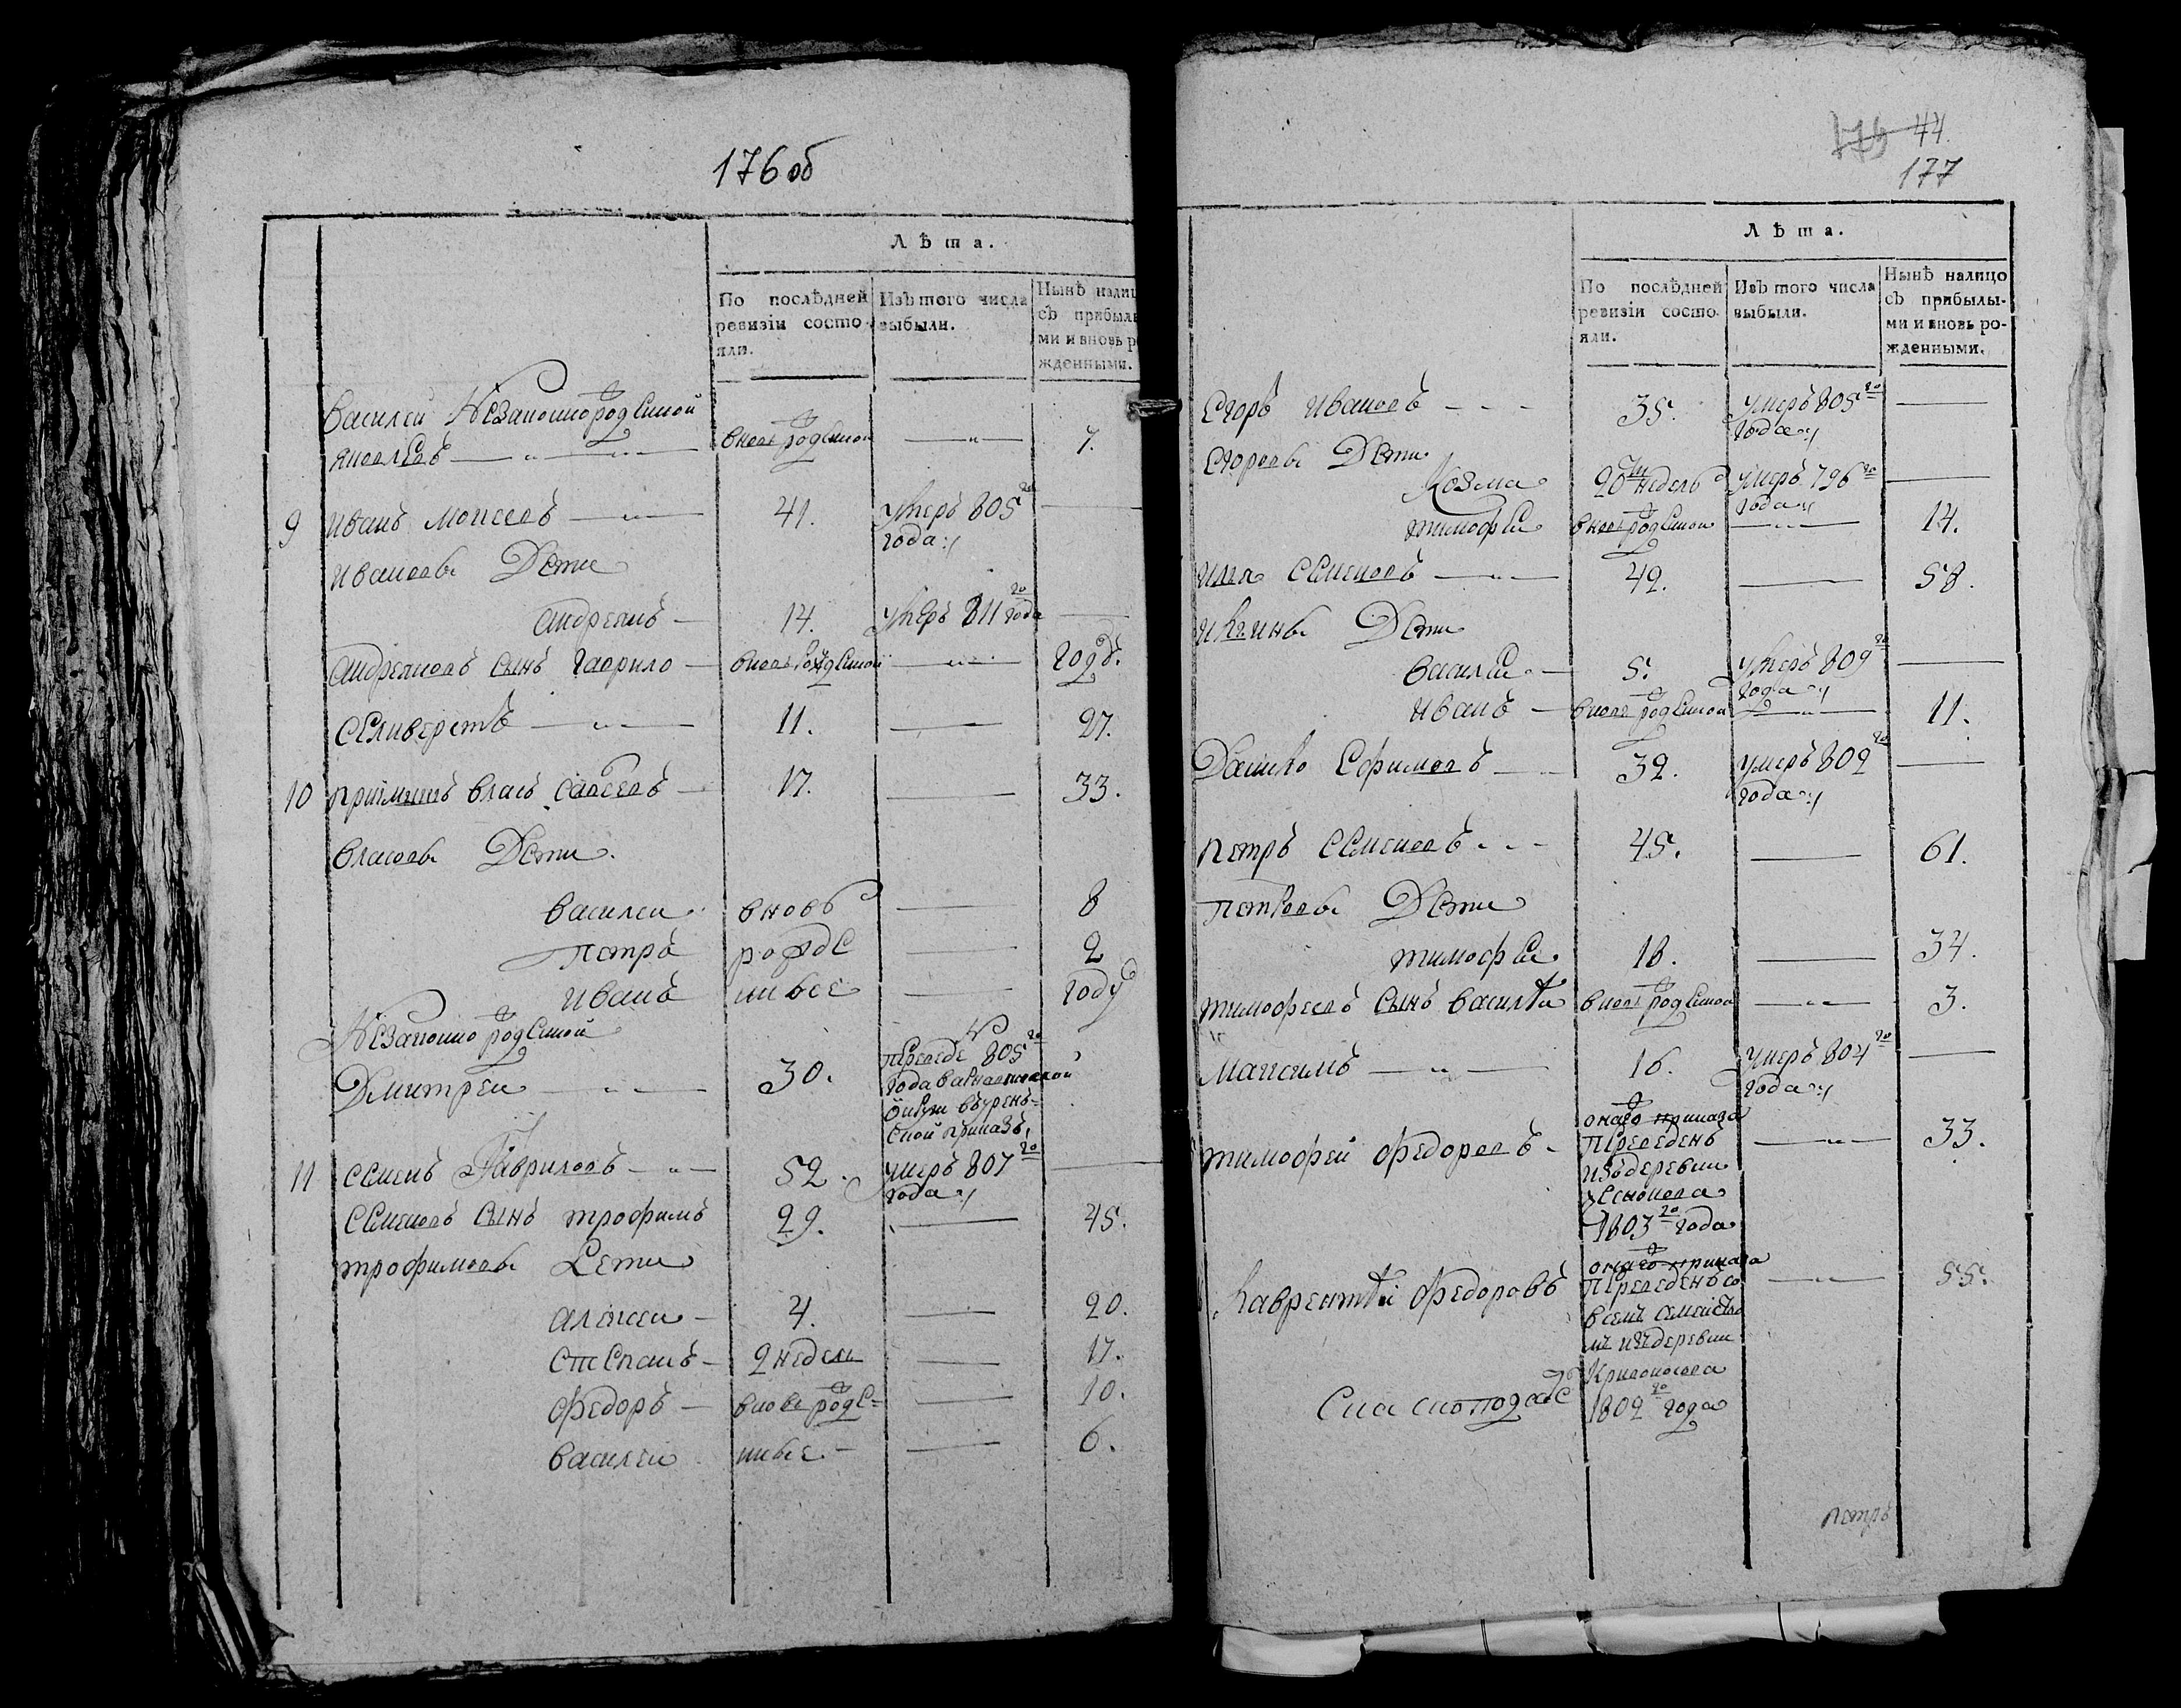 176 об
Лѣта.
По послѣдней ревизіи состояли.
Изъ того числа выбыли.
Нынѣ налиц
съ прибылы
ми и вновь р
жденными.
Василей Незаконно рожденной
вновь рожденной 7.
9 Иванъ Моисеевъ 41. умеръ 805го
года
Ивановы Дети
андреянъ 14. умеръ 811го года
андреяновъ сынъ гаврило вновь рожденной годъ.
селиверстъ 11. 27.
10 приимышъ власъ савеевъ 17. 33.
власовы Дети.
василеи вновь 8
петръ рожде 2
иванъ нные году
Незаконно рожденной
Дмитреи 30. переведе 805го
года
11 семенъ Гавриловъ 52. умеръ 807го
года
семеновъ сынъ трофимъ 29. 45.
трофимовы Дети
алексеи 4. 20.
степанъ 2 недель 17.
Федоръ вновь рожде= 10.
василеи нные. 6.
44.
177
Лѣта.
По послѣдней ревизіи состояли.
Изъ того числа выбыли.
Нынѣ налицо
съ прибылы-
ми и вновь ро-
жденными.
Егоръ ивановъ 35. умеръ 805го
года
Егоровы Дети
Козма 20ти недель умеръ 796го
года
тимофеи вновь рожденнои 14.
илья семеновъ 42. 58.
ильины Дети
василеи 5. умеръ 809го
года
иванъ вновь рожденнои 11.
Данило Ефимовъ 32. умеръ 802го
года
петръ семеновъ 45. 61.
петровы Дети
тимофеи 18. 34.
тимофеевъ сынъ василеи вновь рожденнои 3.
Максимъ 16. умеръ 804го
года
тимофей Федоровъ онаго приказа 33.
переведенъ
изъ деревни
1803го года
Лаврентеи Федоровъ онаго приказа 55.
переведенъ со
всемъ семейство
мъ изъ деревни
1802го года
петръ